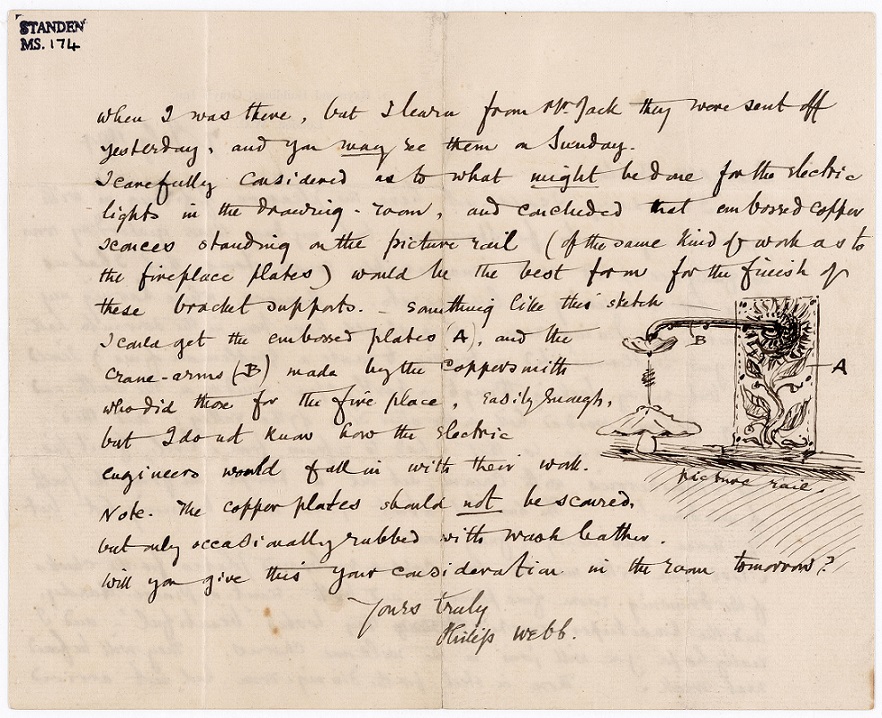 STANDEN
MS. 174
when I was there, but I learn from Mr. Jack they were sent off
yesterday, and you may see them on Sunday.
I carefully considered as to what might be done for the electric
lights in the drawing-room, and concluded that embossed copper
sconces standing on the picture rail (of the same kind of work as to
the fireplace plates) would be the best form for the finish of
these bracket supports. – something like this sketch
I could get the embossed plates (A), and the
crane-arms (B) made by the coppersmith
who did those for the fire place, easily enough,
but I do not know how the electric
engineers would fall in with their work.
Note. The copper plates should not be scoured,
but only occasionally rubbed with wash leather.
Will you give this your consideration in the room tomorrow?
Yours truly
Philip Webb.
B
A
picture rail.